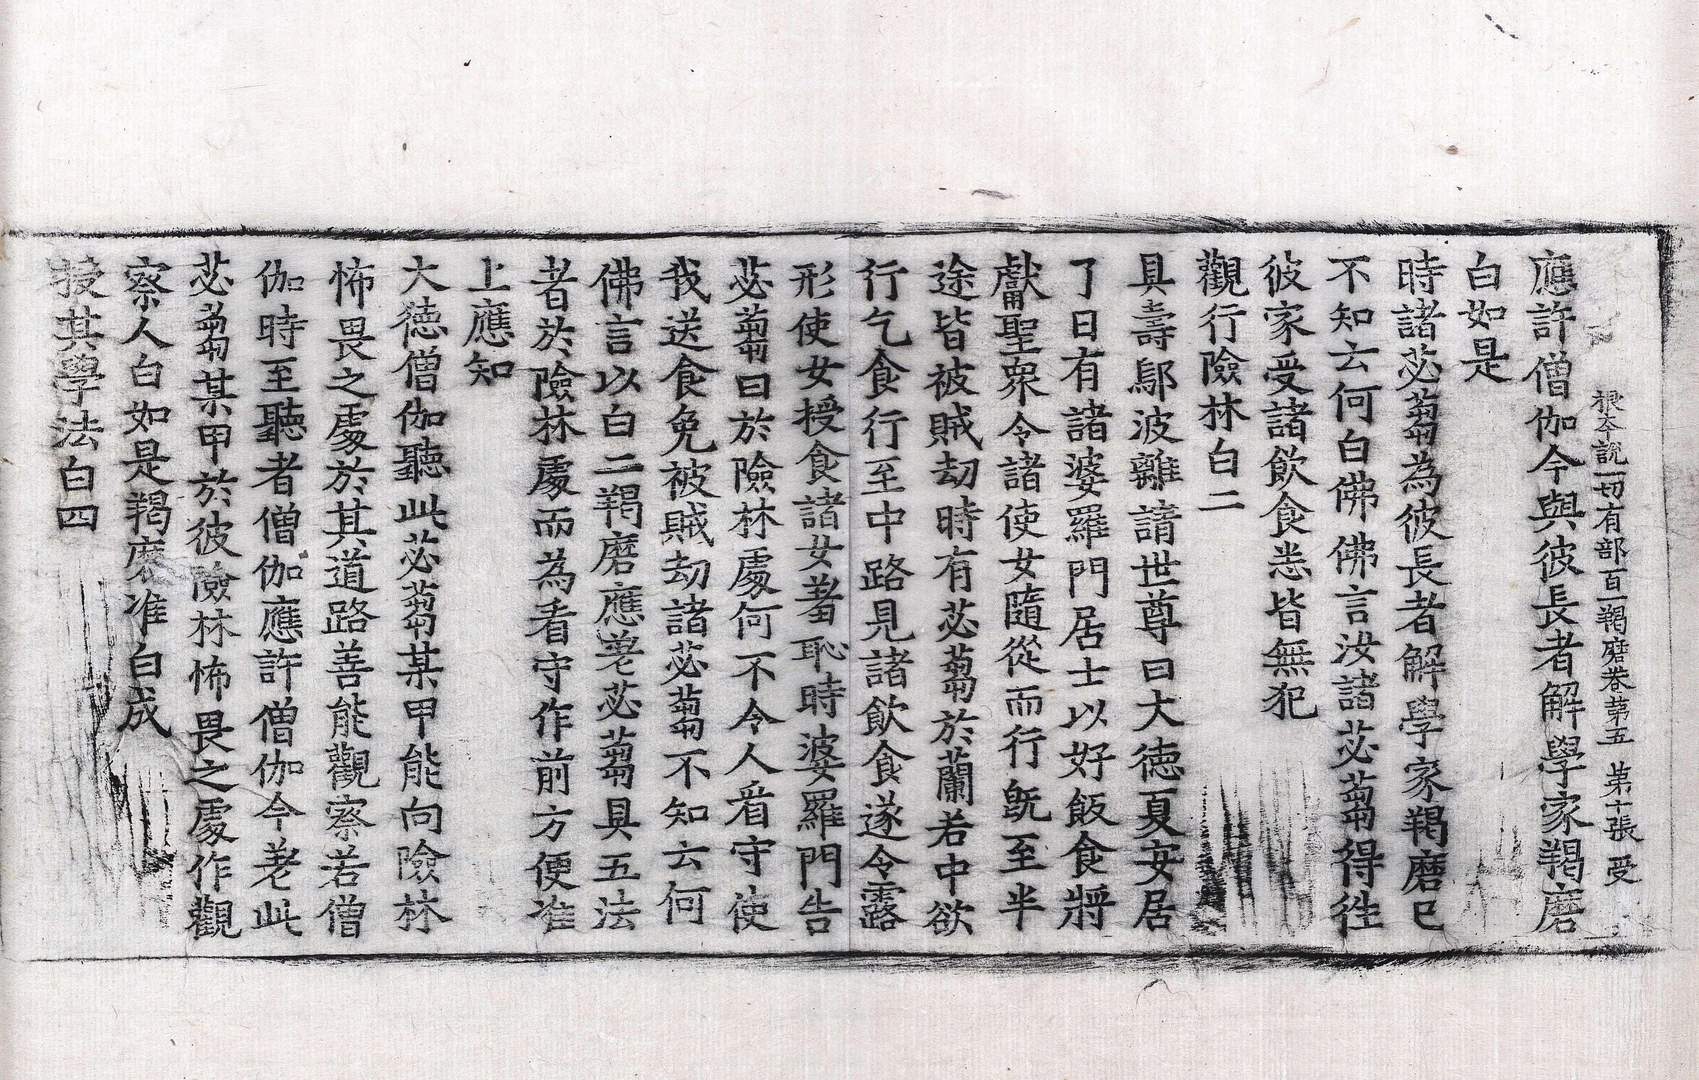 根本說一切有部百一羯磨卷第五 第十張 受
應許僧伽今與彼長者解學家羯磨
白如是
時諸苾蒭為彼長者解學家羯磨已
不知云何白佛佛言汝諸苾蒭得往
彼家受諸飲食悉皆無犯
觀行險林白二
具壽鄔波離請世尊曰大德夏安居
了日有諸婆羅門居士以好飯食將
獻聖眾令諸使女隨從而行既至半
途皆被賊劫時有苾蒭於蘭若中欲
行乞食行至中路見諸飲食遂令露
形使女授食諸女著恥時婆羅門告
苾蒭曰於險林處何不令人看守使
我送食免被賊劫諸苾蒭不知云何
佛言以白二羯磨應差苾蒭具五法
者於險林處而為看守作前方便准
上應知
大德僧伽聽此苾蒭某甲能向險林
怖畏之處於其道路善能觀察若僧
伽時至聽者僧伽應許僧伽今差此
苾蒭某甲於彼險林怖畏之處作觀
察人白如是羯磨准白成
授其學法白四